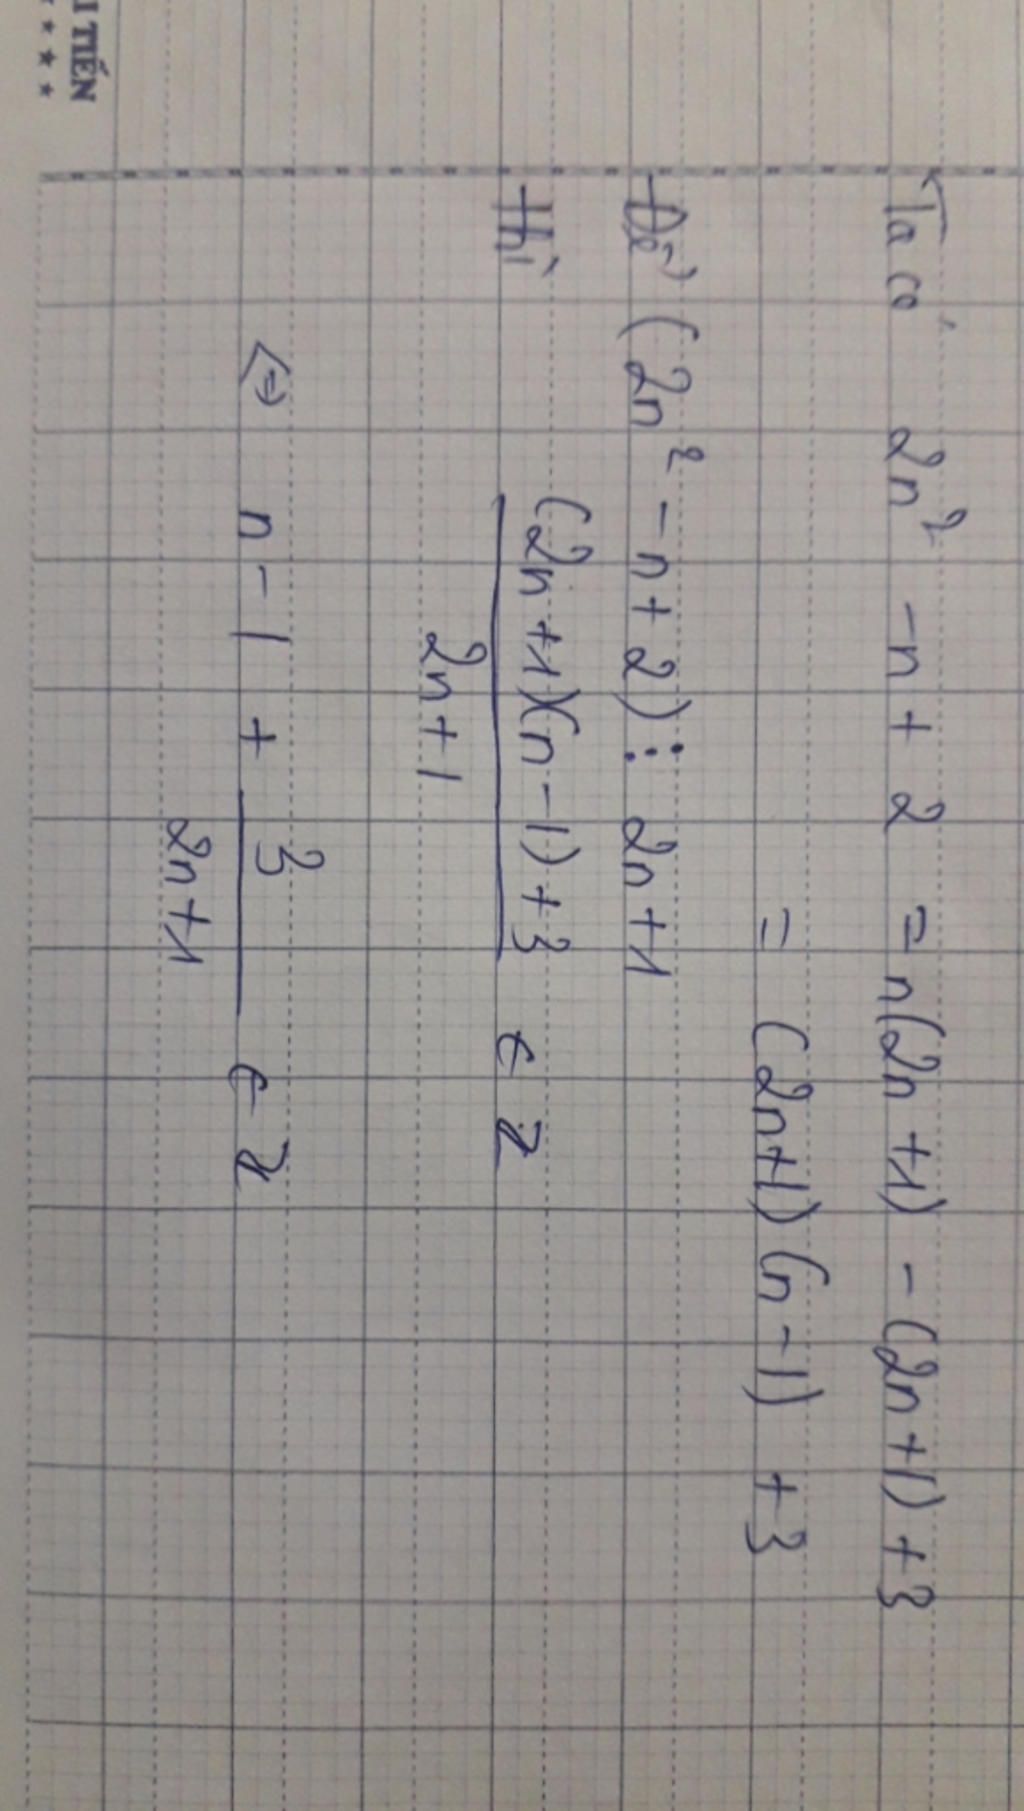 I TIẾN
★ ★ ★ ★
Ta có 2n² - n + 2 = n(2n + 1) - (2n + 1) + 3
= (2n+1)(n - 1) + 3
Để (2n² - n + 2) ⋮ 2n + 1
thì (2n + 1)(n - 1) + 3 / 2n + 1 ∈ Z
⇔ n - 1 + 3 / 2n + 1 ∈ Z